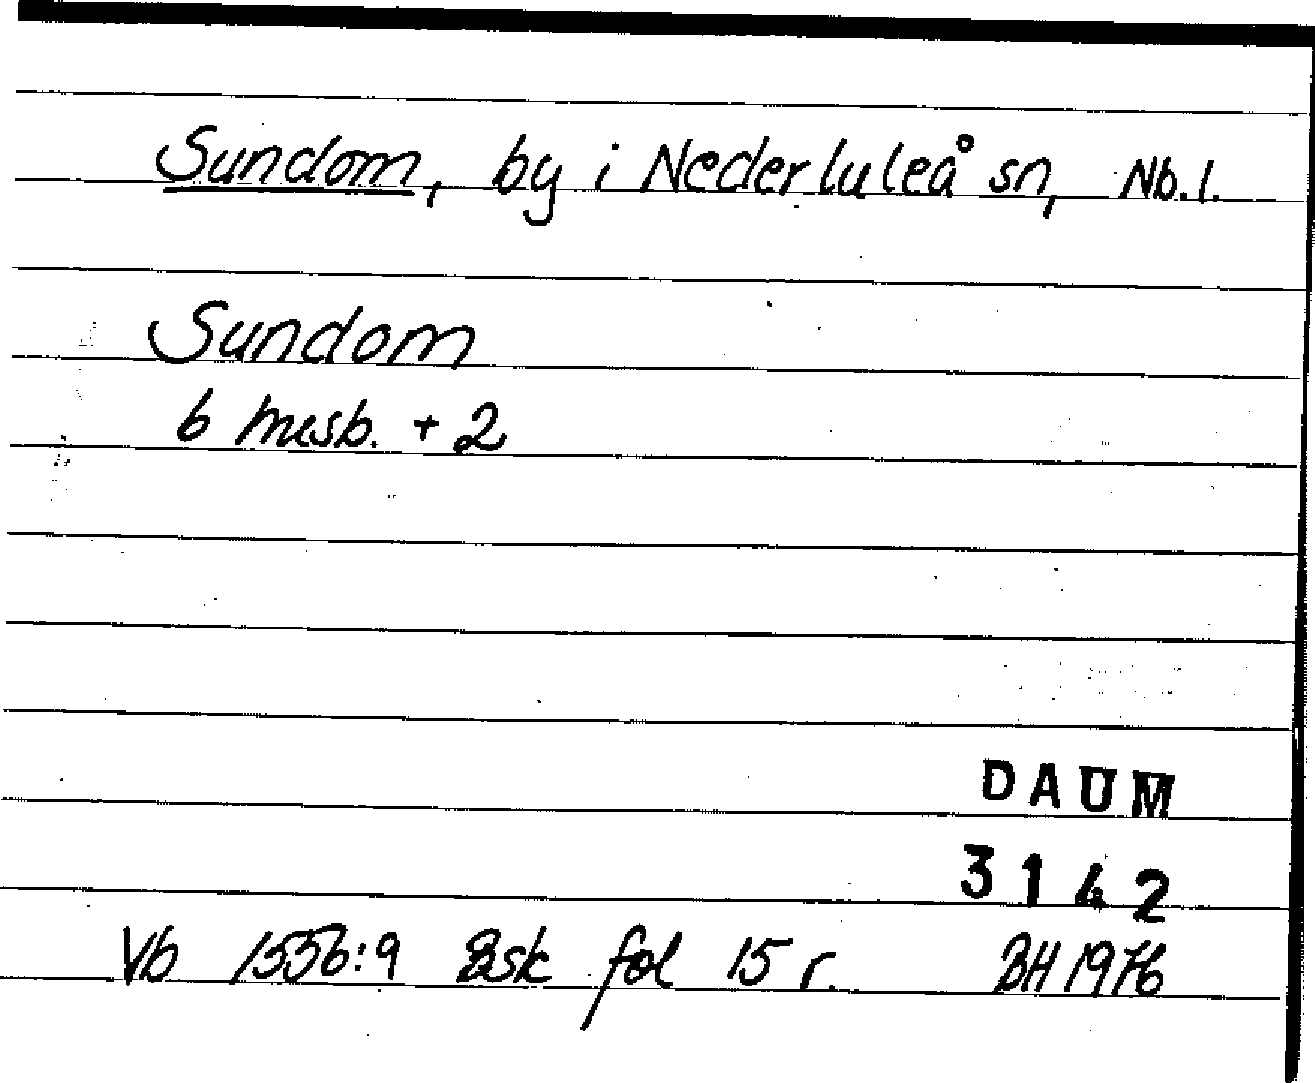 Sundom, by i Nederluleå sn, Nb.l.
Sundom
6 mesb. + 2
DAUM
3142
Vb 1556:9 Esk fol 15 r. BH 1976